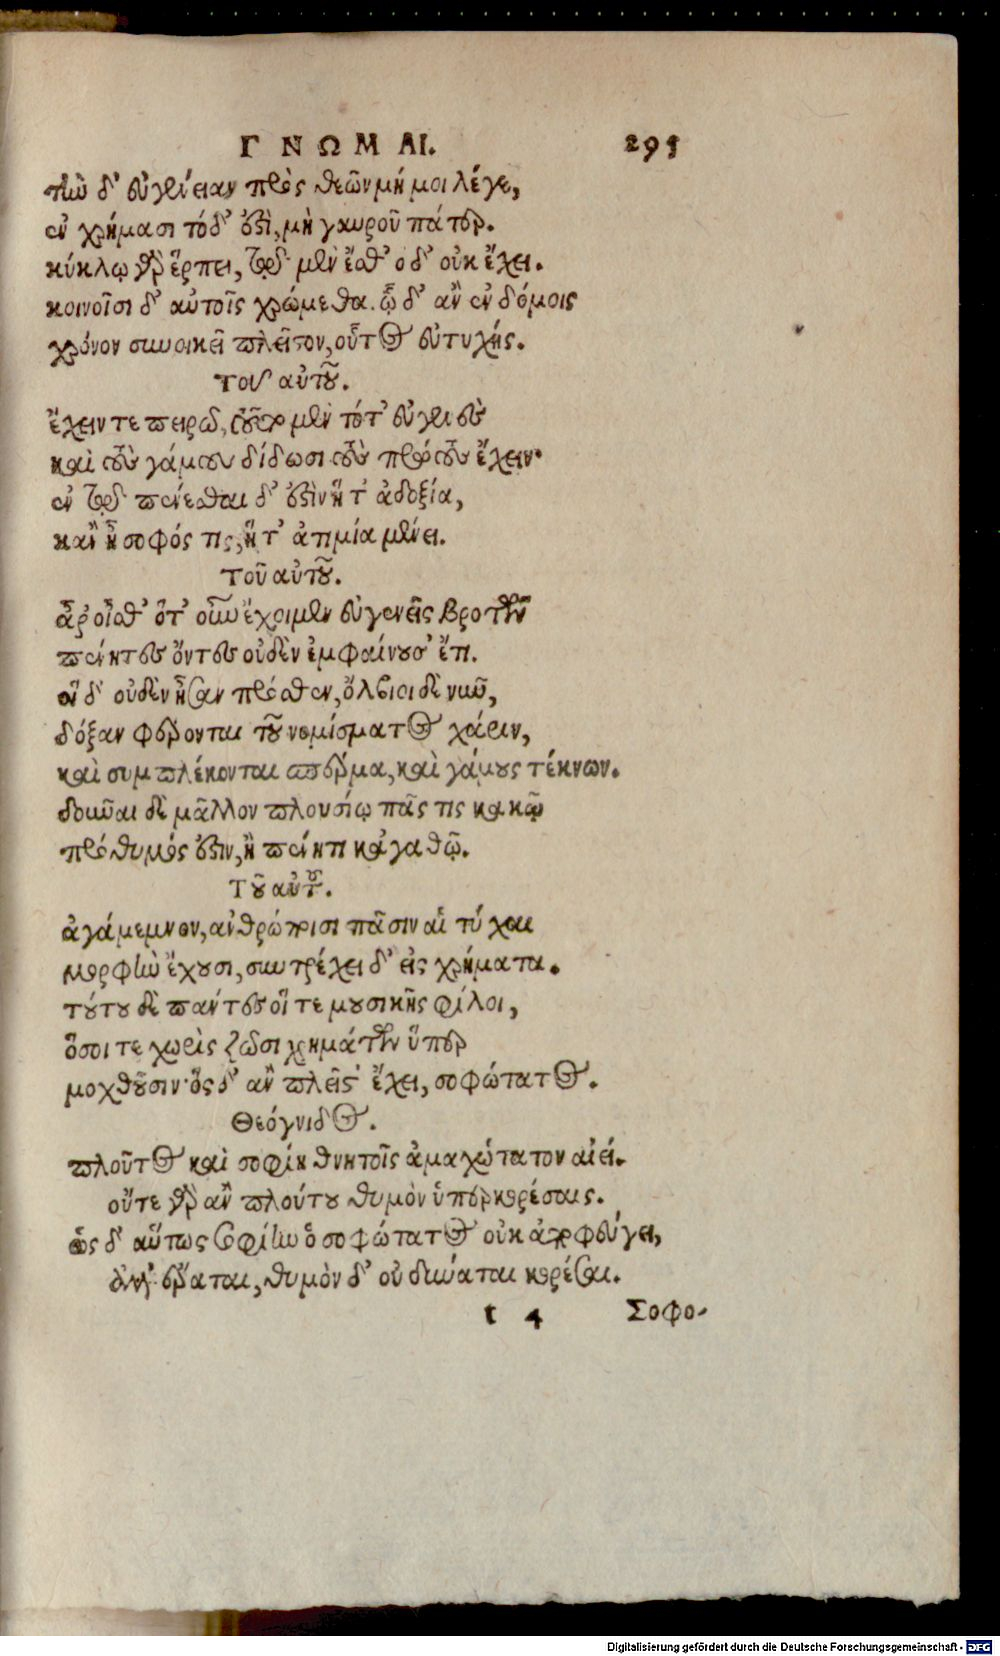 ΓΝΩΜΑΙ. 295
τὴν δ' εὐγένειαν πρὸς θεῶν μή μοι λέγε,
ἐν χρήμασι τόδ' ἐστὶ, μὴ γαυροῦ πάτερ.
κύκλῳ γὰρ ἕρπει, τῷ μὲν ἔσθ' ὁ δ' οὐκ ἔχει.
κοινοῖσι δ' αὐτοῖς χρώμεθα. ᾧ δ' ἂν ἐν δόμοις
χρόνον συνοικεῖ πλεῖστον, οὗτος εὐτυχής.
Τοῦ αὐτοῦ.
ἔχειν τε πειρῶ, τοῦτο μὲν τότ' εὐγενὲς
καὶ τοὺς γάμους δίδωσι τοὺς πρώτους ἔχειν.
ἐν τῷ πένεσθαι δ' ἐστὶν ἥ τ' ἀδοξία,
κἂν ᾖ σοφός τις, ἥ τ' ἀτιμία μένει.
Τοῦ αὐτοῦ.
ἆρ' οἶσθ' ὅτ' οὕνεχοι μὲν εὐγενεῖς βροτῶν
πένητες ὄντες οὐδὲν ἐμφαίνουσ' ἔτι.
οἳ δ' οὐδὲν ἦσαν πρόσθεν, ὄλβιοι δὲ νῦν,
δόξαν φέρονται τοῦ νομίσματος χάριν,
καὶ συμπλέκονται σπέρμα, καὶ γάμους τέκνων.
δοῦναι δὲ μᾶλλον πλουσίῳ πᾶς τις κακῷ
πρόθυμός ἐστιν, ἢ πένητι κἀγαθῷ.
Τοῦ αὐτοῦ.
ἀγάμεμνον, ἀνθρώποισι πᾶσιν αἱ τύχαι
μορφὴν ἔχουσι, συντρέχει δ' εἰς χρήματα.
τούτου δὲ πάντες οἵ τε μουσικῆς φίλοι,
ὅσοι τε χωρὶς ζῶσι χρημάτων ὕπερ
μοχθοῦσιν· ὃς δ' ἂν πλεῖστ' ἔχει, σοφώτατος.
Θεόγνιδος.
πλοῦτος καὶ σοφίη θνητοῖς ἀμαχώτατον αἰεί.
οὔτε γὰρ ἂν πλούτου θυμὸν ὑπερκορέσαις.
ὣς δ' αὔτως σοφίην ὁ σοφώτατος οὐκ ἀποφεύγει,
ἀλλ' ἔραται, θυμὸν δ' οὐ δύναται κορέσαι.
t 4 Σοφο-
Digitalisierung gefördert durch die Deutsche Forschungsgemeinschaft - DFG